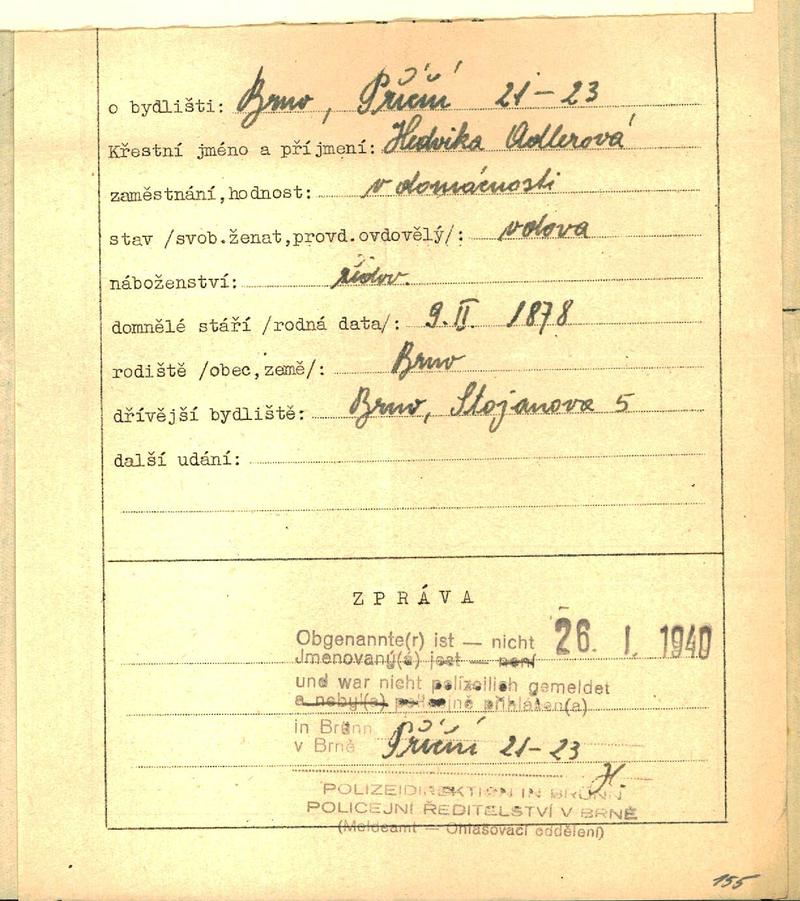 o bydlišti: Brno, Příční 21-23
Křestní jméno a příjmení: Hedvika Adlerová
zaměstnání,hodnost: v domácnosti
stav /svob.ženat,provd.ovdovělý/: vdova
náboženství: židov.
domnělé stáří /rodná data/: 9.II. 1878
rodiště /obec,země/: Brno
dřívější bydliště: Brno, Stojanova 5
další udání:
ZPRÁVA
Obgenannte(r) ist — nicht 26. I. 1940
Jmenovaný(á) jest — není
und war nicht polizeilich gemeldet
a nebyl(a) policejně přihlášen(a)
in Brünn
v Brně Příční 21-23
H.
POLIZEIDIREKTION IN BRÜNN
POLICEJNÍ ŘEDITELSTVÍ V BRNĚ
(Meldeamt — Ohlašovací oddělení)
155